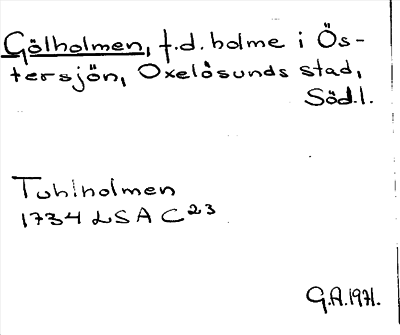 Gölholmen, f.d. holme i Ös-
tersjön, Oxelösunds stad,
Söd.l.
Tuhlholmen
1734 LSA C23
G.A. 1971.